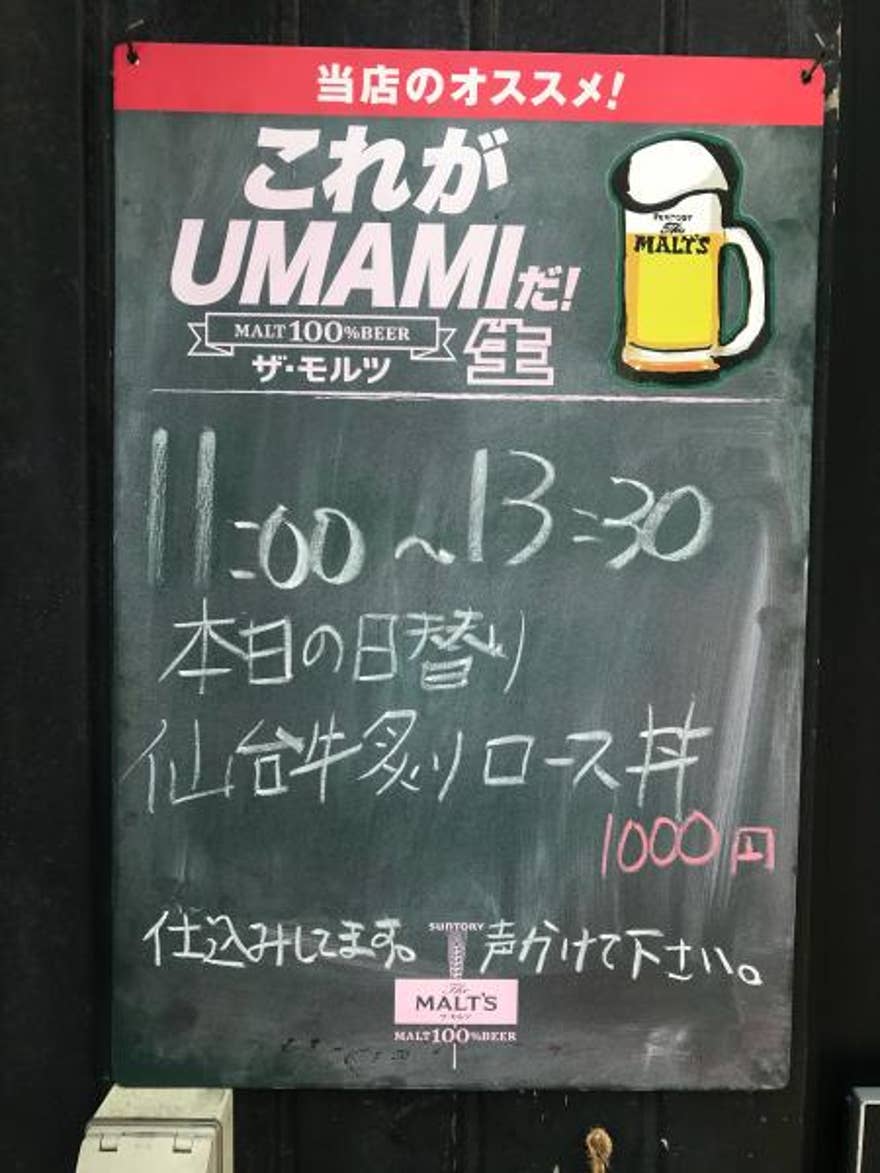 当店のオススメ!
これが
UMAMIだ!
MALT 100%BEER
ザ・モルツ 生
SUNTORY
The
MALT'S
11:00~13:30
本日の日替り
仙台牛炙りロース丼
1000円
仕込みしてます。声かけて下さい。
SUNTORY
The
MALT'S
ザ・モルツ
MALT 100%BEER